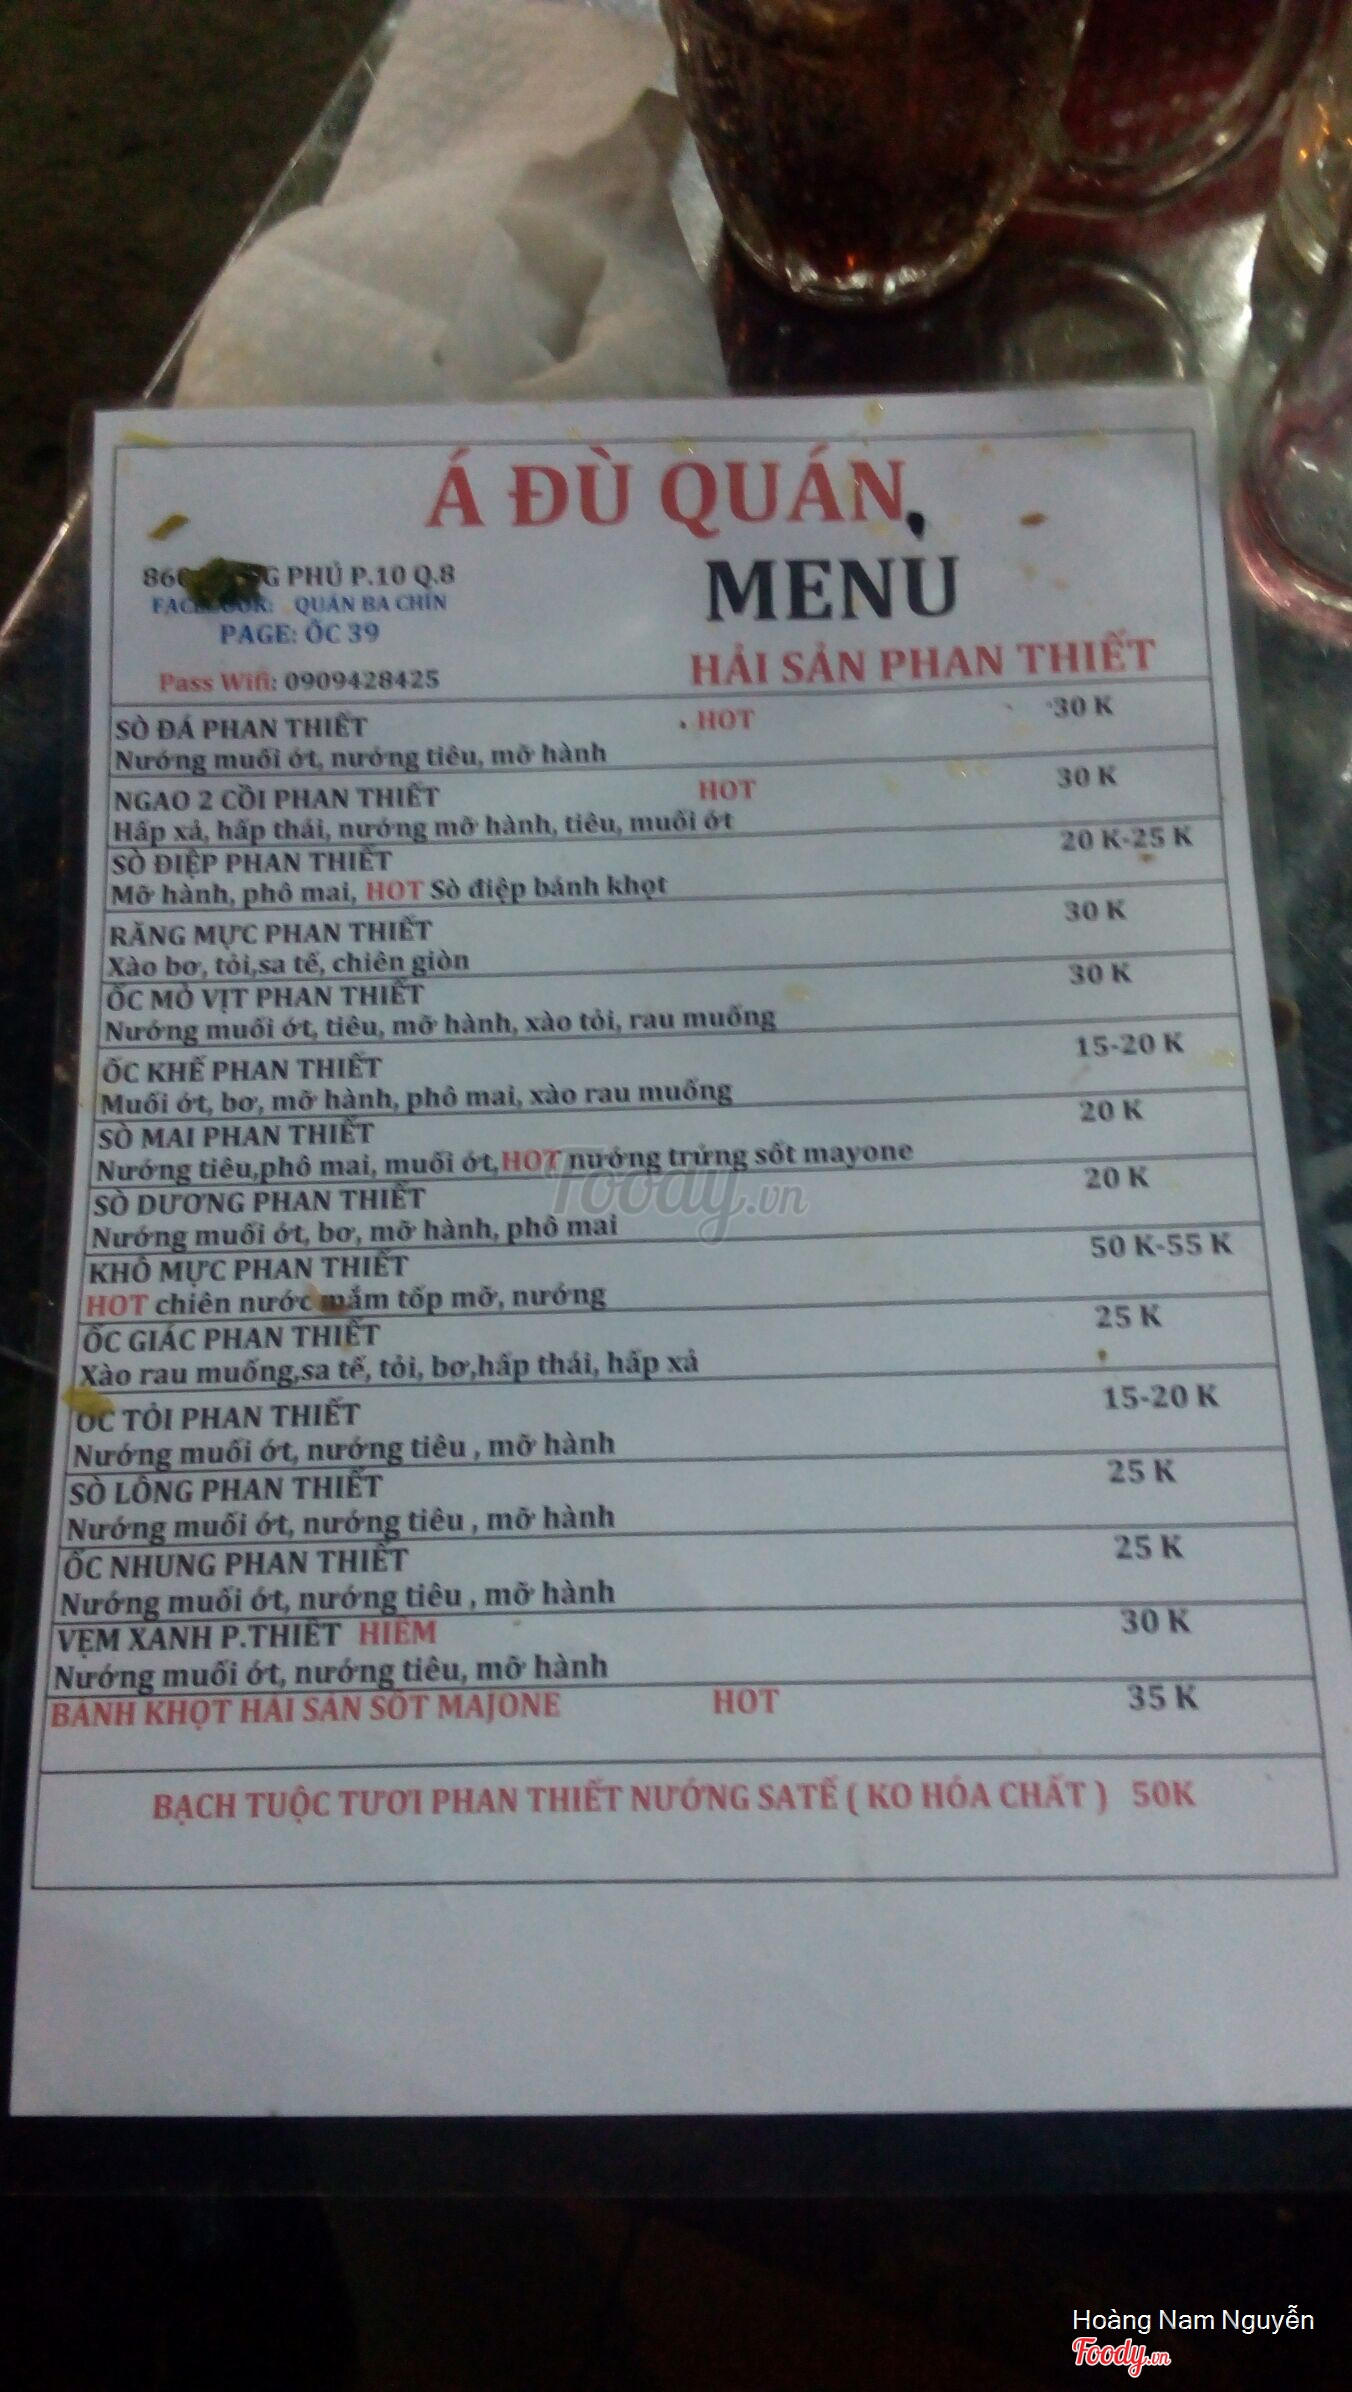 Á ĐÙ QUÁN
PHÚ P.10 Q.8
MENU
FACEBOOK: QUÁN BA CHÍN
PAGE: ỐC 39
Pass Wifi: 0909428425
HẢI SẢN PHAN THIẾT
SÒ ĐÁ PHAN THIẾT HOT 30 K
Nướng muối ớt, nướng tiêu, mỡ hành
NGAO 2 CỒI PHAN THIẾT HOT 30 K
Hấp xả, hấp thái, nướng mỡ hành, tiêu, muối ớt
SÒ ĐIỆP PHAN THIẾT 20 K-25 K
Mỡ hành, phô mai, HOT Sò điệp bánh khọt
RĂNG MỰC PHAN THIẾT 30 K
Xào bơ, tỏi,sa tế, chiên giòn
ỐC MỎ VỊT PHAN THIẾT 30 K
Nướng muối ớt, tiêu, mỡ hành, xào tỏi, rau muống
ỐC KHẾ PHAN THIẾT 15-20 K
Muối ớt, bơ, mỡ hành, phô mai, xào rau muống
SÒ MAI PHAN THIẾT 20 K
Nướng tiêu,phô mai, muối ớt,HOT nướng trứng sốt mayone
SÒ DƯƠNG PHAN THIẾT 20 K
Nướng muối ớt, bơ, mỡ hành, phô mai
KHÔ MỰC PHAN THIẾT 50 K-55 K
HOT chiên nước mắm tốp mỡ, nướng
ỐC GIÁC PHAN THIẾT 25 K
Xào rau muống,sa tế, tỏi, bơ,hấp thái, hấp xả
ỐC TỎI PHAN THIẾT 15-20 K
Nướng muối ớt, nướng tiêu , mỡ hành
SÒ LÔNG PHAN THIẾT 25 K
Nướng muối ớt, nướng tiêu , mỡ hành
ỐC NHUNG PHAN THIẾT 25 K
Nướng muối ớt, nướng tiêu , mỡ hành
VẸM XANH P.THIẾT HIẾM 30 K
Nướng muối ớt, nướng tiêu, mỡ hành
BÁNH KHỌT HẢI SẢN SỐT MAJONE HOT 35 K
BẠCH TUỘC TƯƠI PHAN THIẾT NƯỚNG SATẾ ( KO HÓA CHẤT ) 50K
Foody.vn
Hoàng Nam Nguyễn
Foody.vn